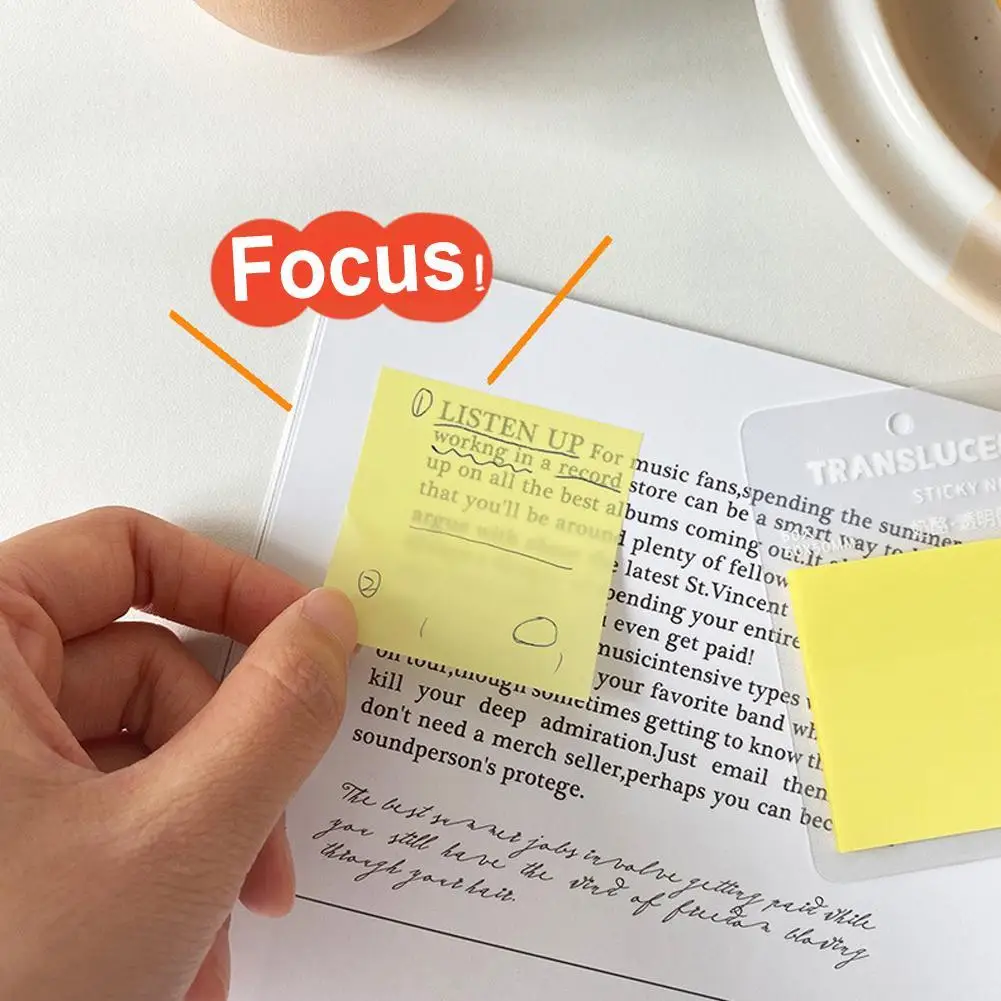 Focus!
① LISTEN UP For music fans,spending the summer
workng in a record store can be a smart way to
up on all the best albums coming out.It
that you'll be around plenty of fellow
argue with latest St.Vincent
pending your entire
even get paid!
musicintensive types
on tour,though sometimes getting to know
kill your deep admiration.Just email then
don't need a merch seller,perhaps you can bec
soundperson's protege.
②
your favorite band wh
The best summer jobs involve getting paid while
you still have the kind of freedom blowing
through your hair.
TRANSLUCE
STICKY N
50×50MM